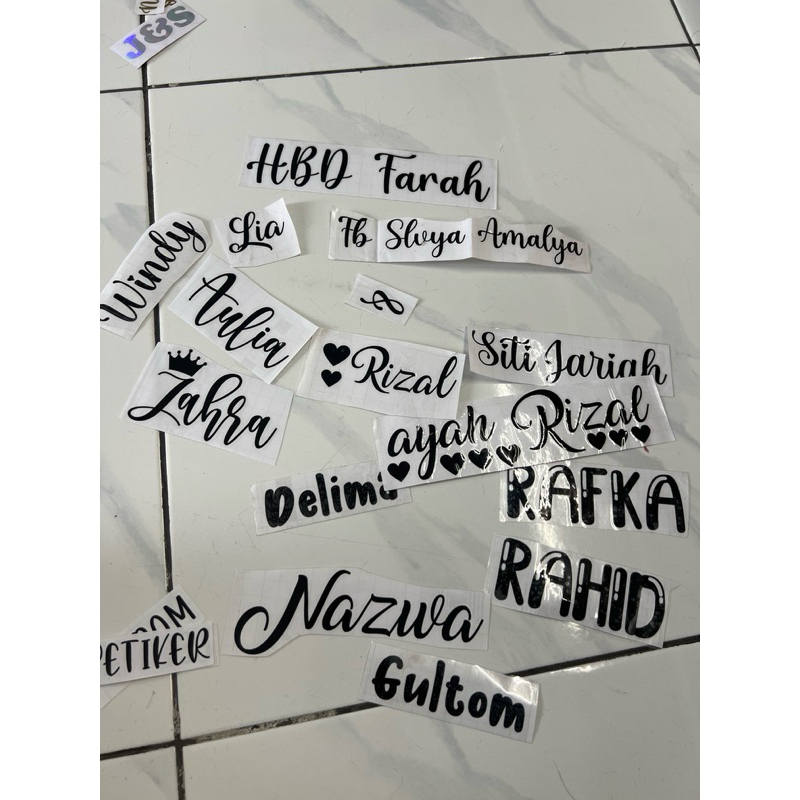 J&S
HBD Farah
Windy
Lia
Fb Slvya Amalya
Aulia
&
Zahra
Rizal
Siti Jariah
ayah Rizal
Delima
RAFKA
RAHID
Nazwa
ETIKER
Gultom